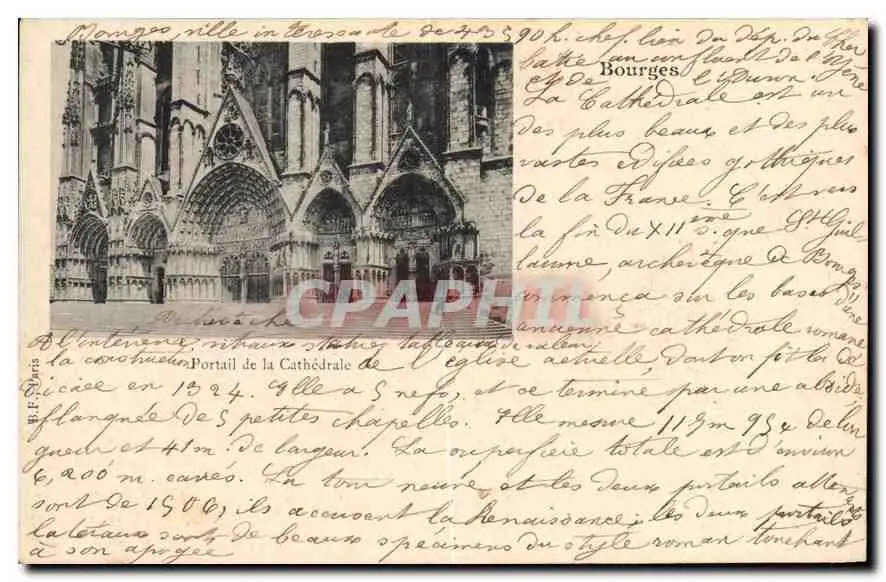 Bourges, ville intéressante de 43590 h. chef lieu du dép. du Cher
battie au confluent de l'Yèvre
et de l'Auron.
Bourges
La Cathédrale est un
des plus beaux et des plus
vastes édifices gothiques
de la France. C'est vers
la fin du XIIème s. que St Guil-
laume, archevêque de Bourges
commença sur les bases d'une
ancienne cathédrale romane du XI
Archevêché
A l'intérieur, vitraux statues tableaux de valeur
la construction de l'église actuelle, dont on fit la dé
Portail de la Cathédrale
B. F., Paris
dicace en 1324. Elle a 5 nefs, et se termine par une abside
flanquée de 5 petites chapelles. Elle mesure 117m 95 de lon
gueur et 41m. de largeur. La superficie totale est d'environ
6,200 m. carrés. La tour neuve et les deux portails atten
ants
sont de 1506, ils accusent la Renaissance; les deux portails
lateraux sont de beaux spécimens du style roman touchant
à son apogée
CPARAMA